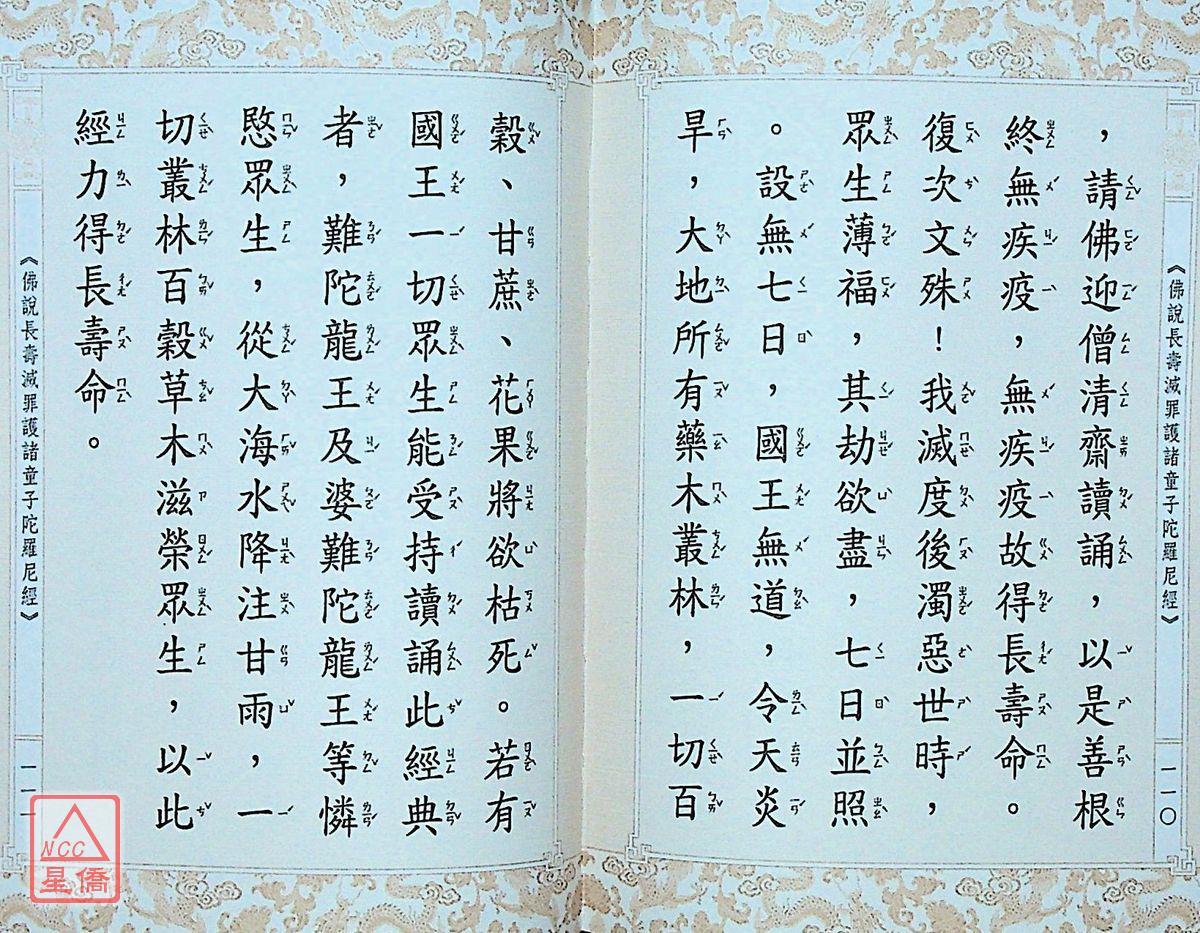 《佛說長壽滅罪護諸童子陀羅尼經》
一一〇
，請佛迎僧清齋讀誦，以是善根
終無疾疫，無疾疫故得長壽命。
復次文殊！我滅度後濁惡世時，
眾生薄福，其劫欲盡，七日並照
。設無七日，國王無道，令天炎
旱，大地所有藥木叢林，一切百
穀、甘蔗、花果將欲枯死。若有
國王一切眾生能受持讀誦此經典
者，難陀龍王及婆難陀龍王等憐
愍眾生，從大海水降注甘雨，一
切叢林百穀草木滋榮眾生，以此
經力得長壽命。
《佛說長壽滅罪護諸童子陀羅尼經》
一一一
NCC
星僑